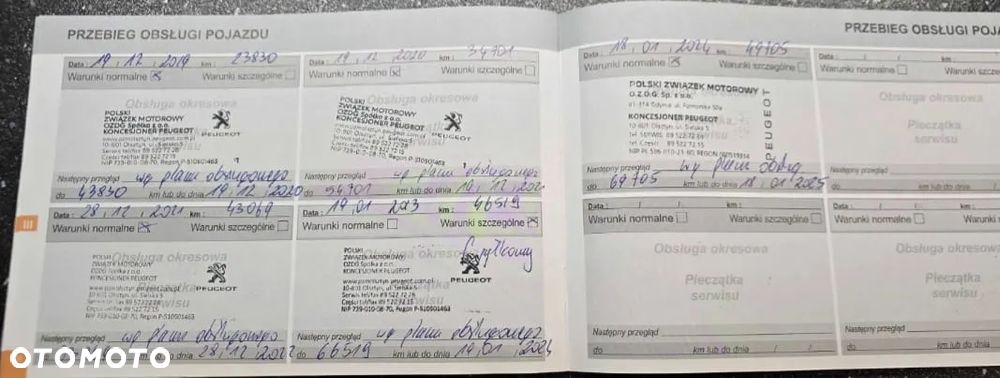 PRZEBIEG OBSŁUGI POJAZDU
Data : 19, 12, 2019 km : 23830
Warunki normalne Warunki szczególne
Obsługa okresowa
POLSKI
ZWIĄZEK MOTOROWY
OZDG Spółka z o.o.
KONCESJONER PEUGEOT
PEUGEOT
10-601 Olsztyn, ul. Sielska 5
Następny przegląd wg planu obsługowego
do 43830 km lub do dnia 19, 12, 2020
Data : 19, 12, 2020 km : 34701
Warunki normalne Warunki szczególne
Obsługa okresowa
POLSKI
ZWIĄZEK MOTOROWY
OZDG Spółka z o.o.
KONCESJONER PEUGEOT
PEUGEOT
10-601 Olsztyn, ul. Sielska 5
Następny przegląd wg planu obsługowego
do 54701 km lub do dnia 19, 12, 2021
III
28, 12, 2021 km : 43069
Warunki normalne Warunki szczególne
Obsługa okresowa
POLSKI
ZWIĄZEK MOTOROWY
OZDG Spółka z o.o.
KONCESJONER PEUGEOT
PEUGEOT
10-601 Olsztyn, ul. Sielska 5
Następny przegląd wg planu obsługowego
km lub do dnia 28, 12, 2022
Data : 19, 01 2023 km : 46519
Warunki normalne Warunki szczególne
Obsługa okresowa
POLSKI
ZWIĄZEK MOTOROWY
OZDG Spółka z o.o.
KONCESJONER PEUGEOT
PEUGEOT
10-601 Olsztyn, ul. Sielska 5
Następny przegląd wg planu obsługowego
do 66519 km lub do dnia 19, 01, 2024
PRZEBIEG OBSŁUGI POJA
Data : 18, 01 2024 km : 49705
Warunki normalne Warunki szczególne
POLSKI ZWIĄZEK MOTOROWY
O.Z.D.G. Sp. z o.o.
KONCESJONER PEUGEOT
10-601 Olsztyn, ul. Sielska 5
PEUGEOT
Następny przegląd wg planu obsług
do 69705 km lub do dnia 18, 01, 2025
Data : / / km :
Warunki normalne Warunki szczególne
Obsługa okresowa
Pieczątka
serwisu
Następny przegląd
do km lub do dnia / /
Data : / / km :
Warunki normalne Warunki szczególne
Obsługa okresowa
Pieczątka
serwisu
Następny przegląd
do km lub do dnia / /
Data : / / km :
Warunki normalne Warunki szc
Obsługa okresowa
Pieczątka
serwisu
Następny przegląd
do km lub do dnia
OTOMOTO